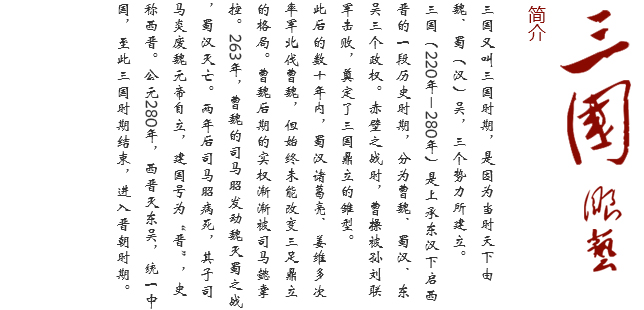 三國演藝
简介
三国又叫三国时期，是因为当时天下由
魏、蜀（汉）吴，三个势力所建立。
三国（220年—280年）是上承东汉下启西
晋的一段历史时期，分为曹魏、蜀汉、东
吴三个政权。赤壁之战时，曹操被孙刘联
军击败，奠定了三国鼎立的雏型。
此后的数十年内，蜀汉诸葛亮、姜维多次
率军北伐曹魏，但始终未能改变三足鼎立
的格局。曹魏后期的实权渐渐被司马懿掌
控。263年，曹魏的司马昭发动魏灭蜀之战
，蜀汉灭亡。两年后司马昭病死，其子司
马炎废魏元帝自立，建国号为“晋”，史
称西晋。公元280年，西晋灭东吴，统一中
国，至此三国时期结束，进入晋朝时期。